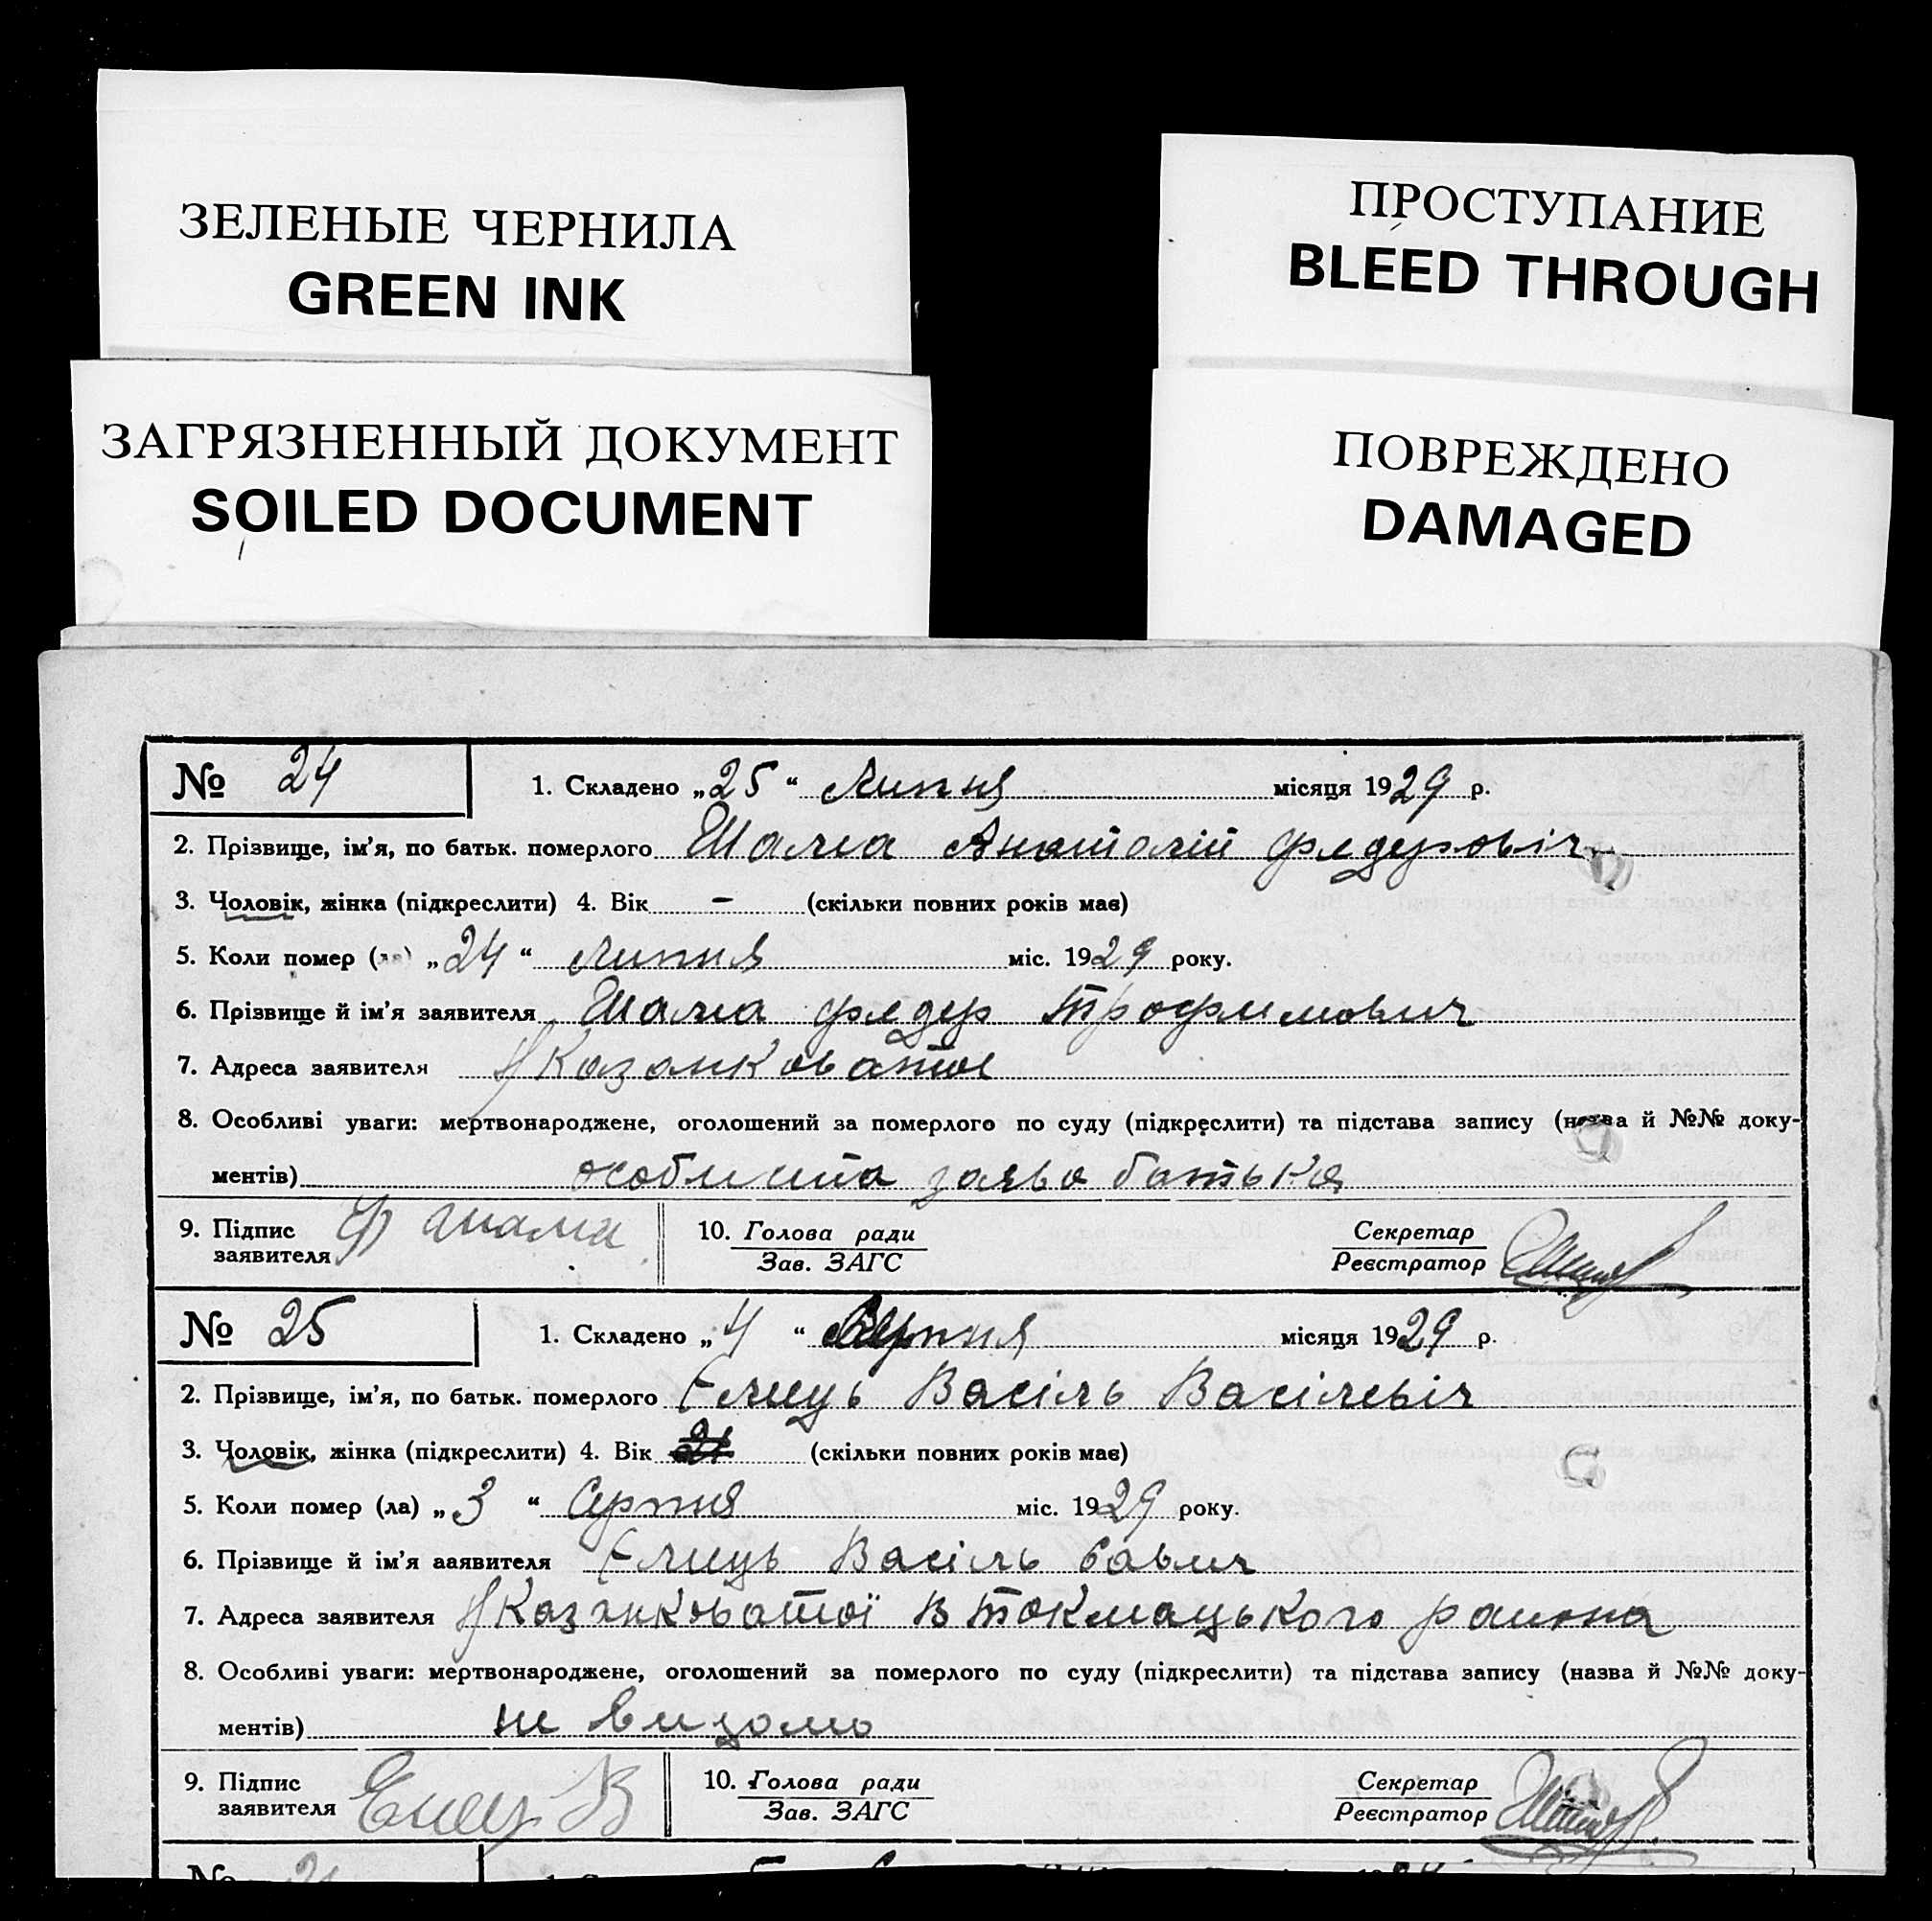 ЗЕЛЕНЫЕ ЧЕРНИЛА
GREEN INK
ПРОСТУПАНИЕ
BLEED THROUGH
ЗАГРЯЗНЕННЫЙ ДОКУМЕНТ
SOILED DOCUMENT
ПОВРЕЖДЕНО
DAMAGED
№ 24 1. Складено „25“ Липня місяця 1929 р.
2. Прізвище, ім'я, по батьк. померлого Шама Анатолій Федеровіч
3. Чоловік, жінка (підкреслити) 4. Вік - (скільки повних років має)
5. Коли помер (ла) „24“ липня міс. 1929 року.
6. Прізвище й ім'я заявителя Шама Федер Трофимович
7. Адреса заявителя Казанковатое
8. Особливі уваги: мертвонароджене, оголошений за померлого по суду (підкреслити) та підстава запису (назва й №№ доку-
ментів) особиста заява батька
9. Підпис заявителя Ф Шама 10. Голова ради Зав. ЗАГС Секретар Реєстратор
№ 25 1. Складено „4“ Серпня місяця 1929 р.
2. Прізвище, ім'я, по батьк. померлого Єлиць Васіль Васілевіч
3. Чоловік, жінка (підкреслити) 4. Вік (скільки повних років має)
5. Коли помер (ла) „3“ Серпня міс. 1929 року.
6. Прізвище й ім'я ааявителя Єлиць Васіль Савич
7. Адреса заявителя Казанковатої В Токмацького раиона
8. Особливі уваги: мертвонароджене, оголошений за померлого по суду (підкреслити) та підстава запису (назва й №№ доку-
ментів) не видомо
9. Підпис заявителя В 10. Голова ради Зав. ЗАГС Секретар Реєстратор